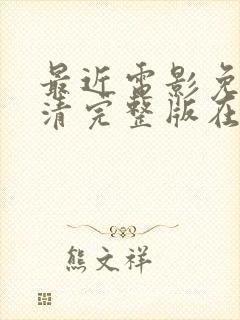 最近电影免
清完整版在
熊文祥